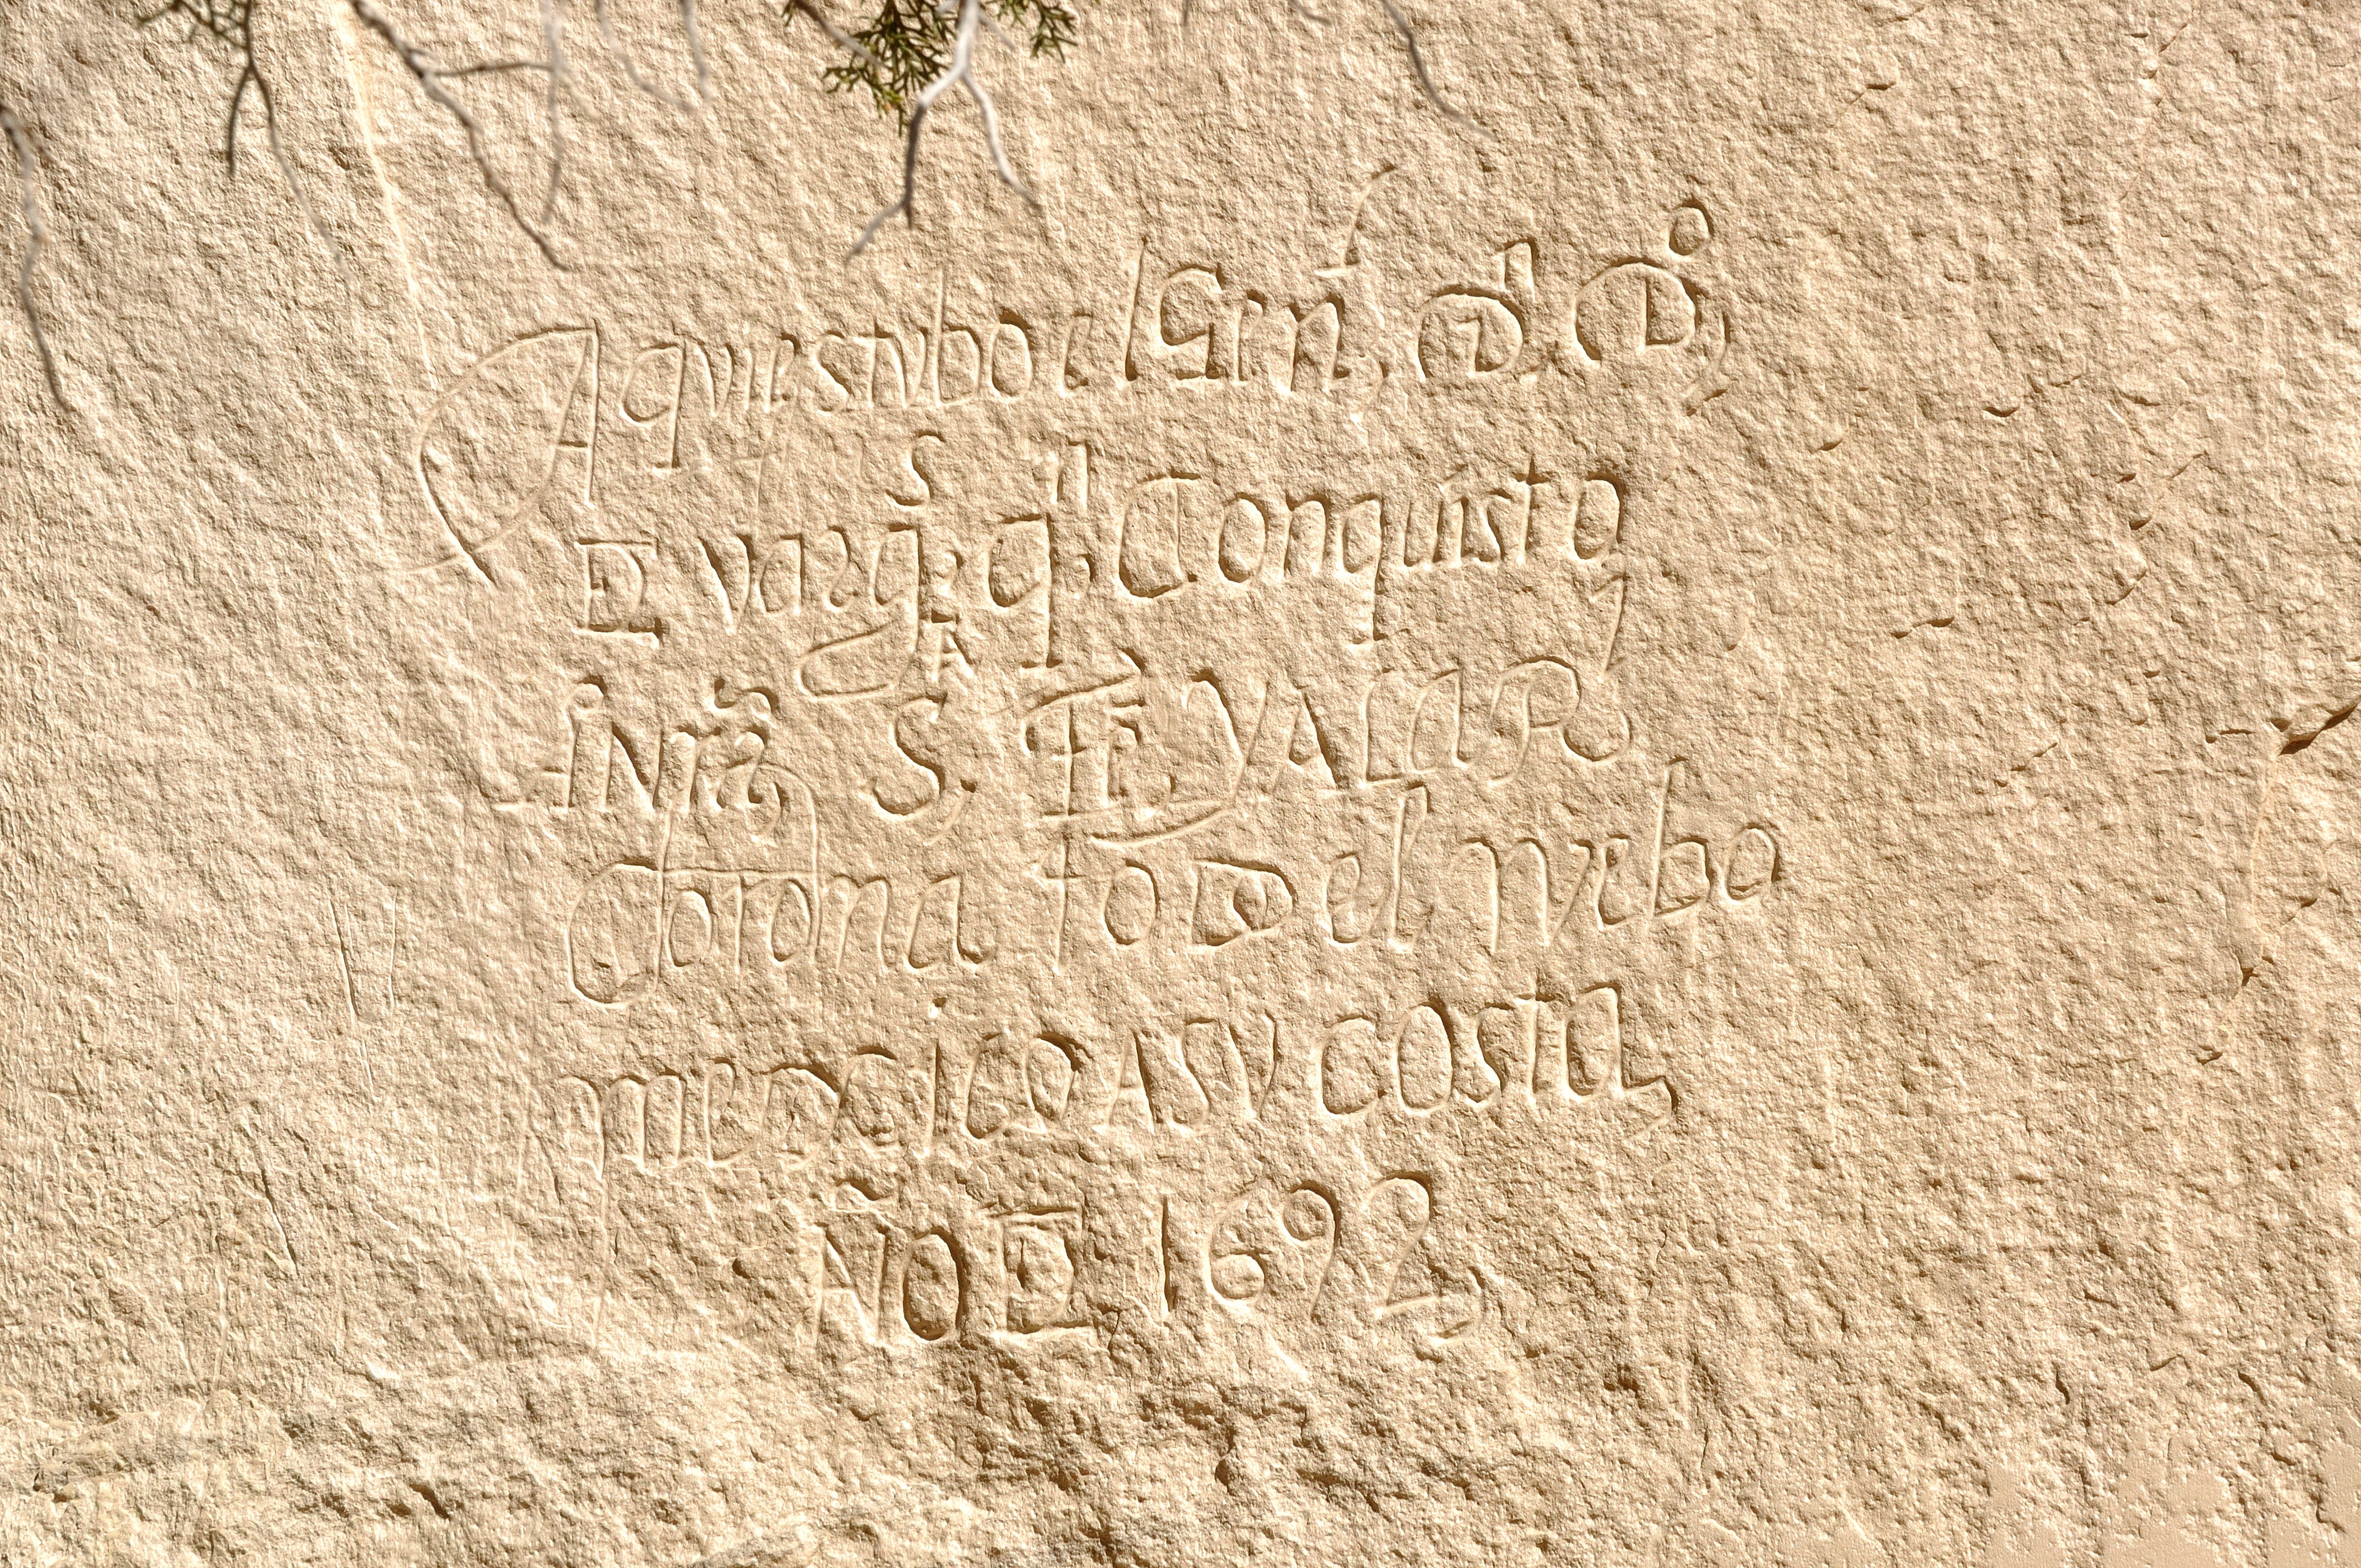 Aqui estubo el Genl, Dn Do,
De Vargs, qn Conquisto
a Nra Sta Fe, Y A La Rl
Corona todo el nuebo
mexico A Su costa,
Año De 1692,